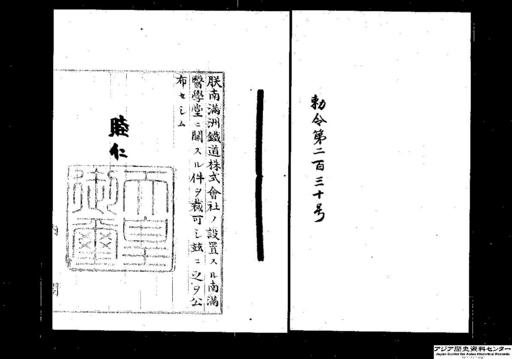 勅令第二百三十号
朕南滿洲鐵道株式會社ノ設置スル南滿
醫學堂ニ關スル件ヲ裁可シ玆ニ之ヲ公
布セシム
睦仁
天皇御璽
内閣
アジア歴史資料センター
Japan Center for Asian Historical Records